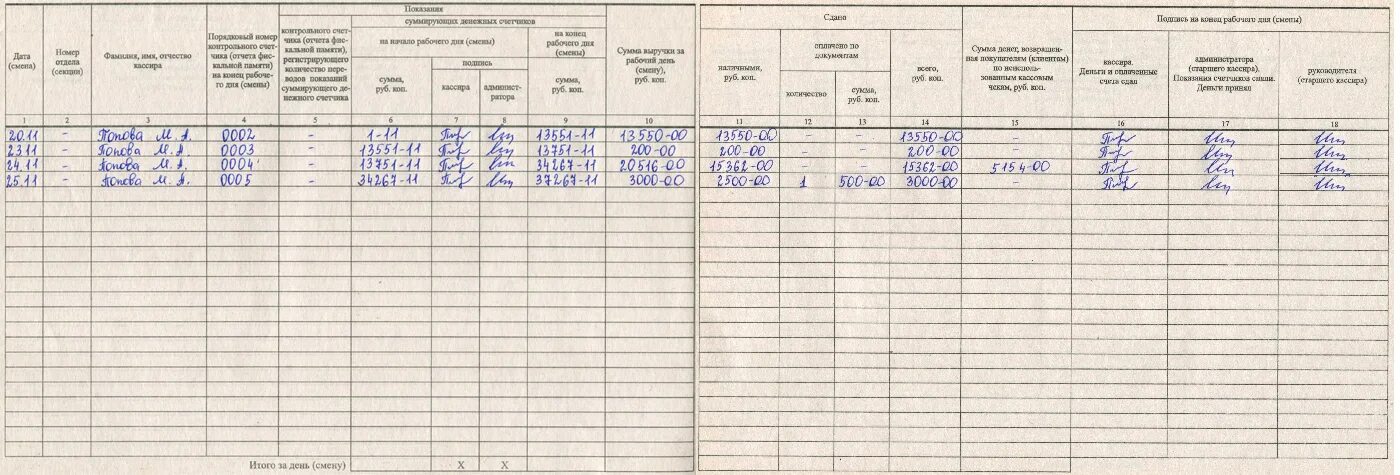 Показания
контрольного счет-
чика (отчета фис-
кальной памяти),
регистрирующего
количество пере-
водов показаний
суммирующего де-
нежного счетчика
суммирующих денежных счетчиков
Дата
(смена)
Номер
отдела
(секции)
Фамилия, имя, отчество
кассира
Порядковый номер
контрольного счет-
чика (отчета фис-
кальной памяти)
на конец рабоче-
го дня (смены)
на начало рабочего дня (смены)
на конец
рабочего дня
(смены)
сумма,
руб. коп.
подпись
кассира
админист-
ратора
сумма,
руб. коп.
Сумма выручки за
рабочий день
(смену),
руб. коп.
Сдано
наличными,
руб. коп.
оплачено по
документам
количество
сумма,
руб. коп.
всего,
руб. коп.
Сумма денег, возвращен-
ная покупателям (клиентам)
по неисполь-
зованным кассовым
чекам, руб. коп.
Подпись на конец рабочего дня (смены)
кассира.
Деньги и оплаченные
счета сдал
администратора
(старшего кассира).
Показания счетчиков сняли.
Деньги принял
руководителя
(старшего кассира)
1 2 3 4 5 6 7 8 9 10 11 12 13 14 15 16 17 18
20.11 - Попова М. А. 0002 - 1-11 13551-11 13550-00 13550-00 - - 13550-00 -
23.11 - Попова М. А. 0003 - 13551-11 13751-11 200-00 200-00 - - 200-00 -
24.11 - Попова М. А. 0004 - 13751-11 34267-11 20516-00 15362-00 - - 15362-00 5154-00
25.11 - Попова М. А. 0005 - 34267-11 37267-11 3000-00 2500-00 1 500-00 3000-00 -
Итого за день (смену) X X